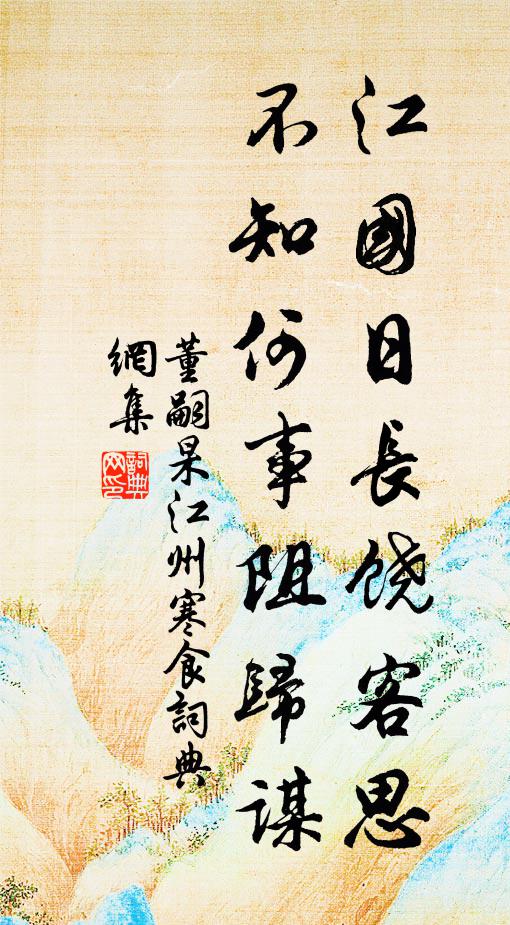 江國日長饒客思
不知何事阻歸謀
董嗣杲江州寒食詞典
網集
詞典
网印